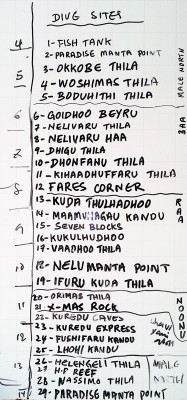 DIVE SITES
4 1-FISH TANK
2-PARADISE MANTA POINT
5 3-OKKOBE THILA
4-WOSHIMAS THILA
5-BODUHITHI THILA
MALE NORTH
6 6-GOIDHOO BEYRU
7-NELIVARU THILA
7 8-NELIVARU HAA
9-DHIGU THILA
10-DHONFANU THILA
11-KIHAADHUFFARU THILA
8 12 FARES CORNER
BAA
13-KUDA THULHADHOO
9 14-MAAMUNAGAU KANDU
15-SEVEN BLOCKS
16-KUKULHUDHOO
17-VAADHOO THILA
10 12-NELU MANTA POINT
19-IFURU KUDA THILA
RAA
11 20-ORIMAS THILA
21 X-MAS ROCK
22-KUREDU CAVES
12 23-KUREDU EXPRESS
24-FUSHIFARU KANDU
25-LHOHI KANDU
NOONU
13 26-HELENGELI THILA
27-H.P REEF
28-NASSIMO THILA
14 29-PARADISE MANTA POINT
MALE